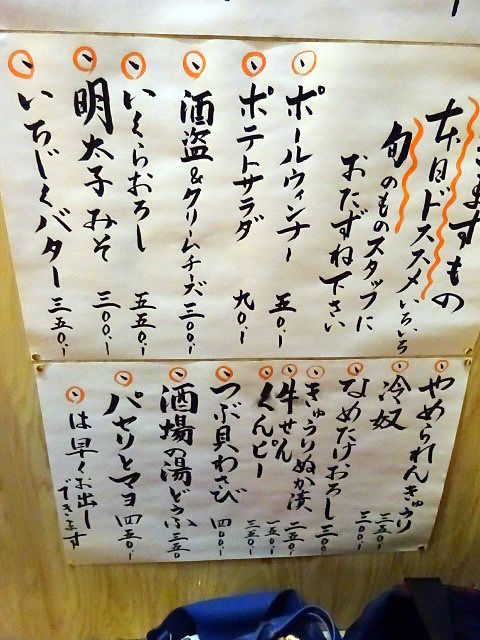 きますもの
本日ドススメいろいろ
旬のものスタッフに
おたずね下さい
ポールウィンナー 五〇.-
ポテトサラダ 九〇.-
酒盗&クリームチーズ 三〇〇.-
いくらおろし 五五〇.-
明太子みそ 三〇〇.-
いちじくバター 三五〇.-
やめられんきゅうり 三五〇.-
冷奴 三〇〇.-
なめたけおろし 三〇〇.-
きゅうりぬか漬 二五〇.-
牛せん 一五〇.-
くんピー 三五〇.-
つぶ貝わさび 四〇〇.-
酒場の湯どうふ 三五〇
パセリとマヨ 四五〇.-
は早くお出し
できます